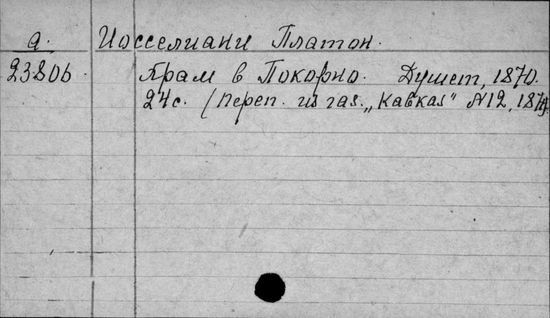 а. Иосселиани Платон.
23806. Храм в Покорно. Душет, 1870.
24с. (Переп. из газ. „Кавказ" №12, 1870)